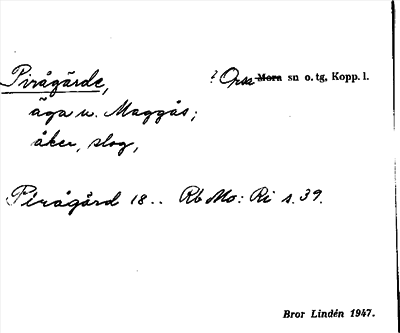 Pirågärde, ? Orsa Mora sn o. tg, Kopp. l.
äga u. Maggås;
åker, slog,
Pirågård 18 .. Rb Mo: Ri s. 39.
Bror Lindén 1947.